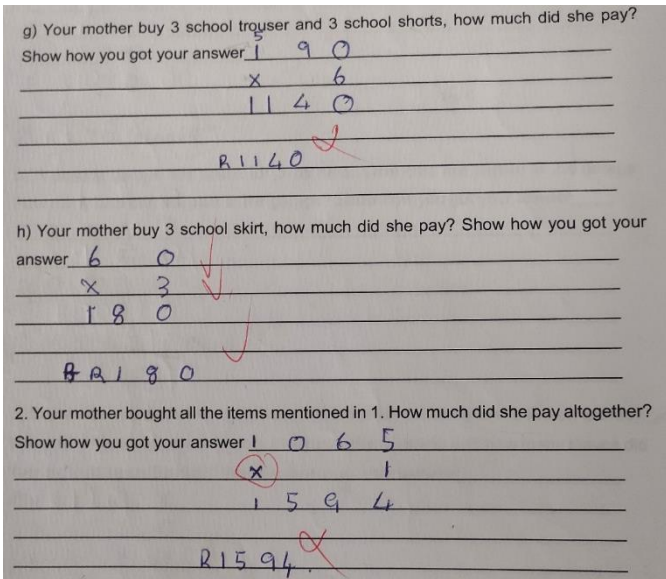 g) Your mother buy 3 school trouser and 3 school shorts, how much did she pay?
5
Show how you got your answer 1 9 0
x 6
1 1 4 0
R1140
h) Your mother buy 3 school skirt, how much did she pay? Show how you got your
answer 6 0
x 3
1 8 0
R 1 8 0
2. Your mother bought all the items mentioned in 1. How much did she pay altogether?
Show how you got your answer 1 0 6 5
x 1
1 5 9 4
R1594.